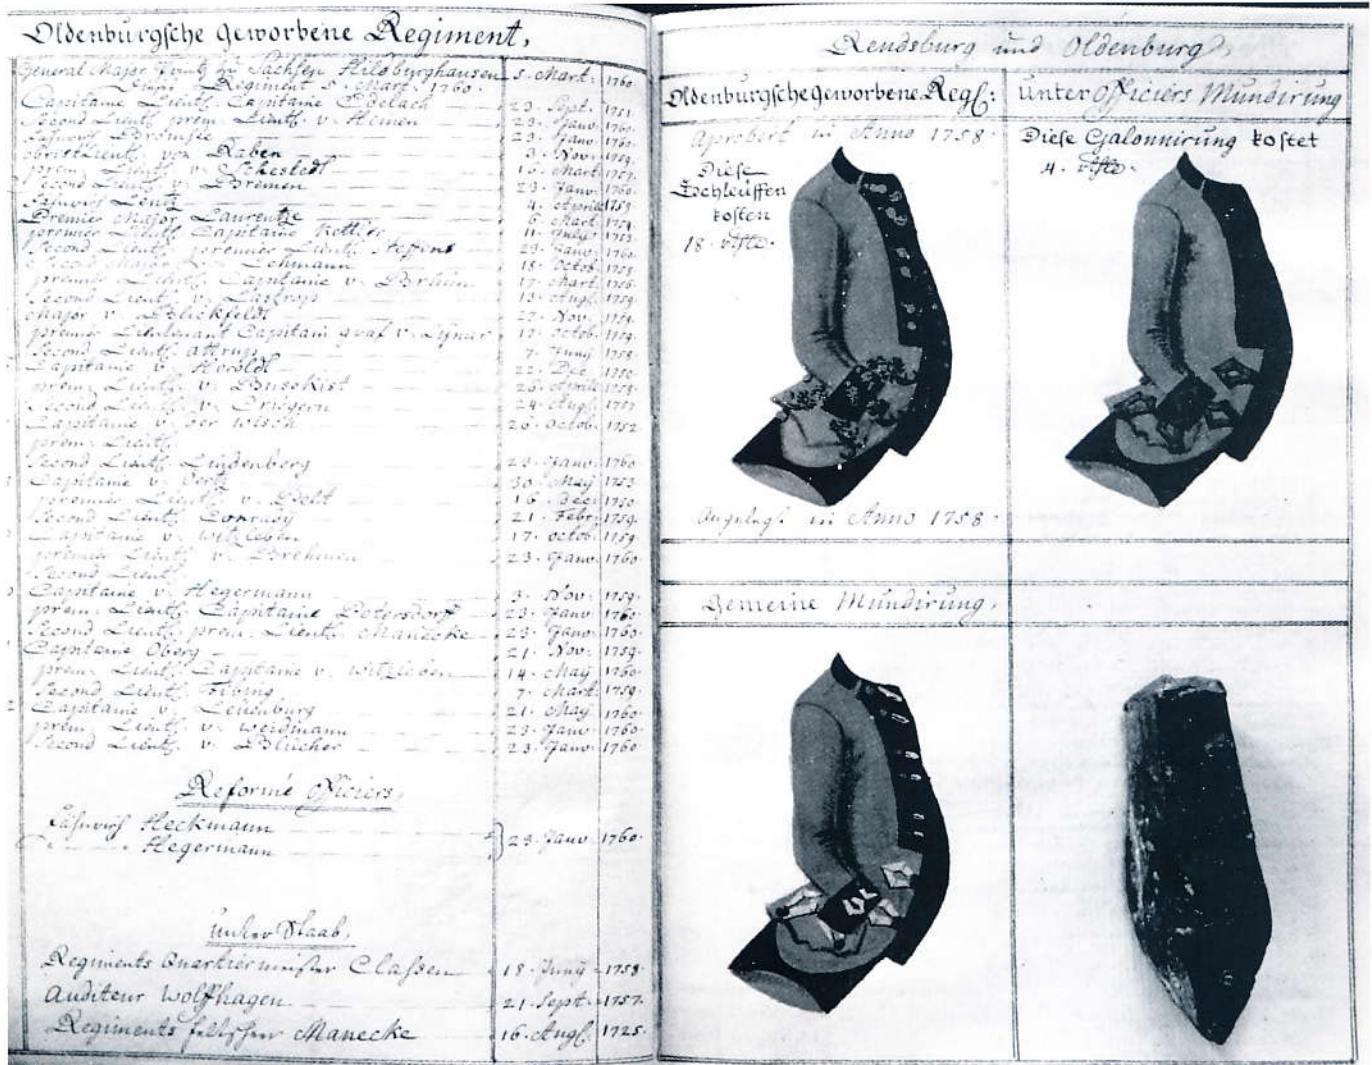 Oldenburgsche geworbene Regiment,
General Major Printz zu Sachsen Hildburghausen 5. Mart: 1760.
Regiment 5. Mart. 1760.
Capitaine Lieut. Capitaine Edelach 23. Sept. 1751
Second Lieut. prem. Lieut. v. Heinen 23. Janv. 1760.
Fähnrich Brömsee 23. Janv. 1760.
Obrist Lieut. von Raben 3. Nov. 1759.
prem. Lieut. v. Schestedl 16. Mart. 1757.
Second Lieut. v. Bremen 23. Janv. 1760.
Fähnrich Lentz 4. Aprill 1759
Premier Major Laurentze 6. Mart. 1754
premier Lieut. Capitaine Kettler 11. July 1753
Second Lieut. premier Lieut. Steffens 23. Janv. 1760
Second Major v. Lehmann 18. Octob. 1758
premier Lieut. Capitaine v. Brüün 17. Mart. 1756.
Second Lieut. v. Castrop 13. Aug. 1759.
Major v. Blickfeldt 27. Nov. 1754.
premier Lieutenant Capitain graf v. Lynar 17. Octob. 1759.
Second Lieut. attrup 7. Juny 1758.
Capitaine v. Heroldt 22. Dec. 1750.
prem. Lieut. v. Bussekist 26. Aprill 1758.
Second Lieut. v. Criegern 24. Aug. 1757
Capitaine v. der Wisch 26. Octob. 1752
prem. Lieut.
Second Lieut. Lindenberg 23. Janv. 1760
Capitaine v. Oertz 30. May 1753
premier Lieut. v. Pelt 16. Dec. 1750.
Second Lieut. Conrady 21. Febr. 1759.
Capitaine v. witzleben 17. octob. 1759.
premier Lieut. v. Brehmen 23. Janv. 1760
Second Lieut.
Capitaine v. Hegermann 3. Nov. 1759.
prem. Lieut. Capitaine Petersdorff 23. Janv. 1760.
Second Lieut. prem. Lieut. Manecke 23. Janv. 1760.
Capitaine Oberg 21. Nov. 1759.
prem. Lieut. Capitaine v. witzleben 14. May 1760.
Second Lieut. Fibing 7. Mart. 1759.
Capitaine v. Leuenburg 21. May 1760.
prem. Lieut. v. weidmann 23. Janv. 1760.
Second Lieut. v. Blücher 23. Janv. 1760
Reformé Officiers,
Fähnrich Heckmann
Hegermann 23. Janv. 1760.
Unter Staab,
Regiments Quartiermeister Claßen 18. Juny 1758.
Auditeur Wolffhagen 21. Sept. 1757.
Regiments feltscher Manecke 16. Aug. 1725.
Rendsburg und Oldenburg,
Oldenburgsche geworbene Reg:
Unter Officiers Mundirung
Aprobert in Anno 1758.
Diese Galonnirung kostet
4. rthl.
Diese
Schleüffen
kosten
18. rthl.
Angelegt in Anno 1758.
Gemeine Mundirung,